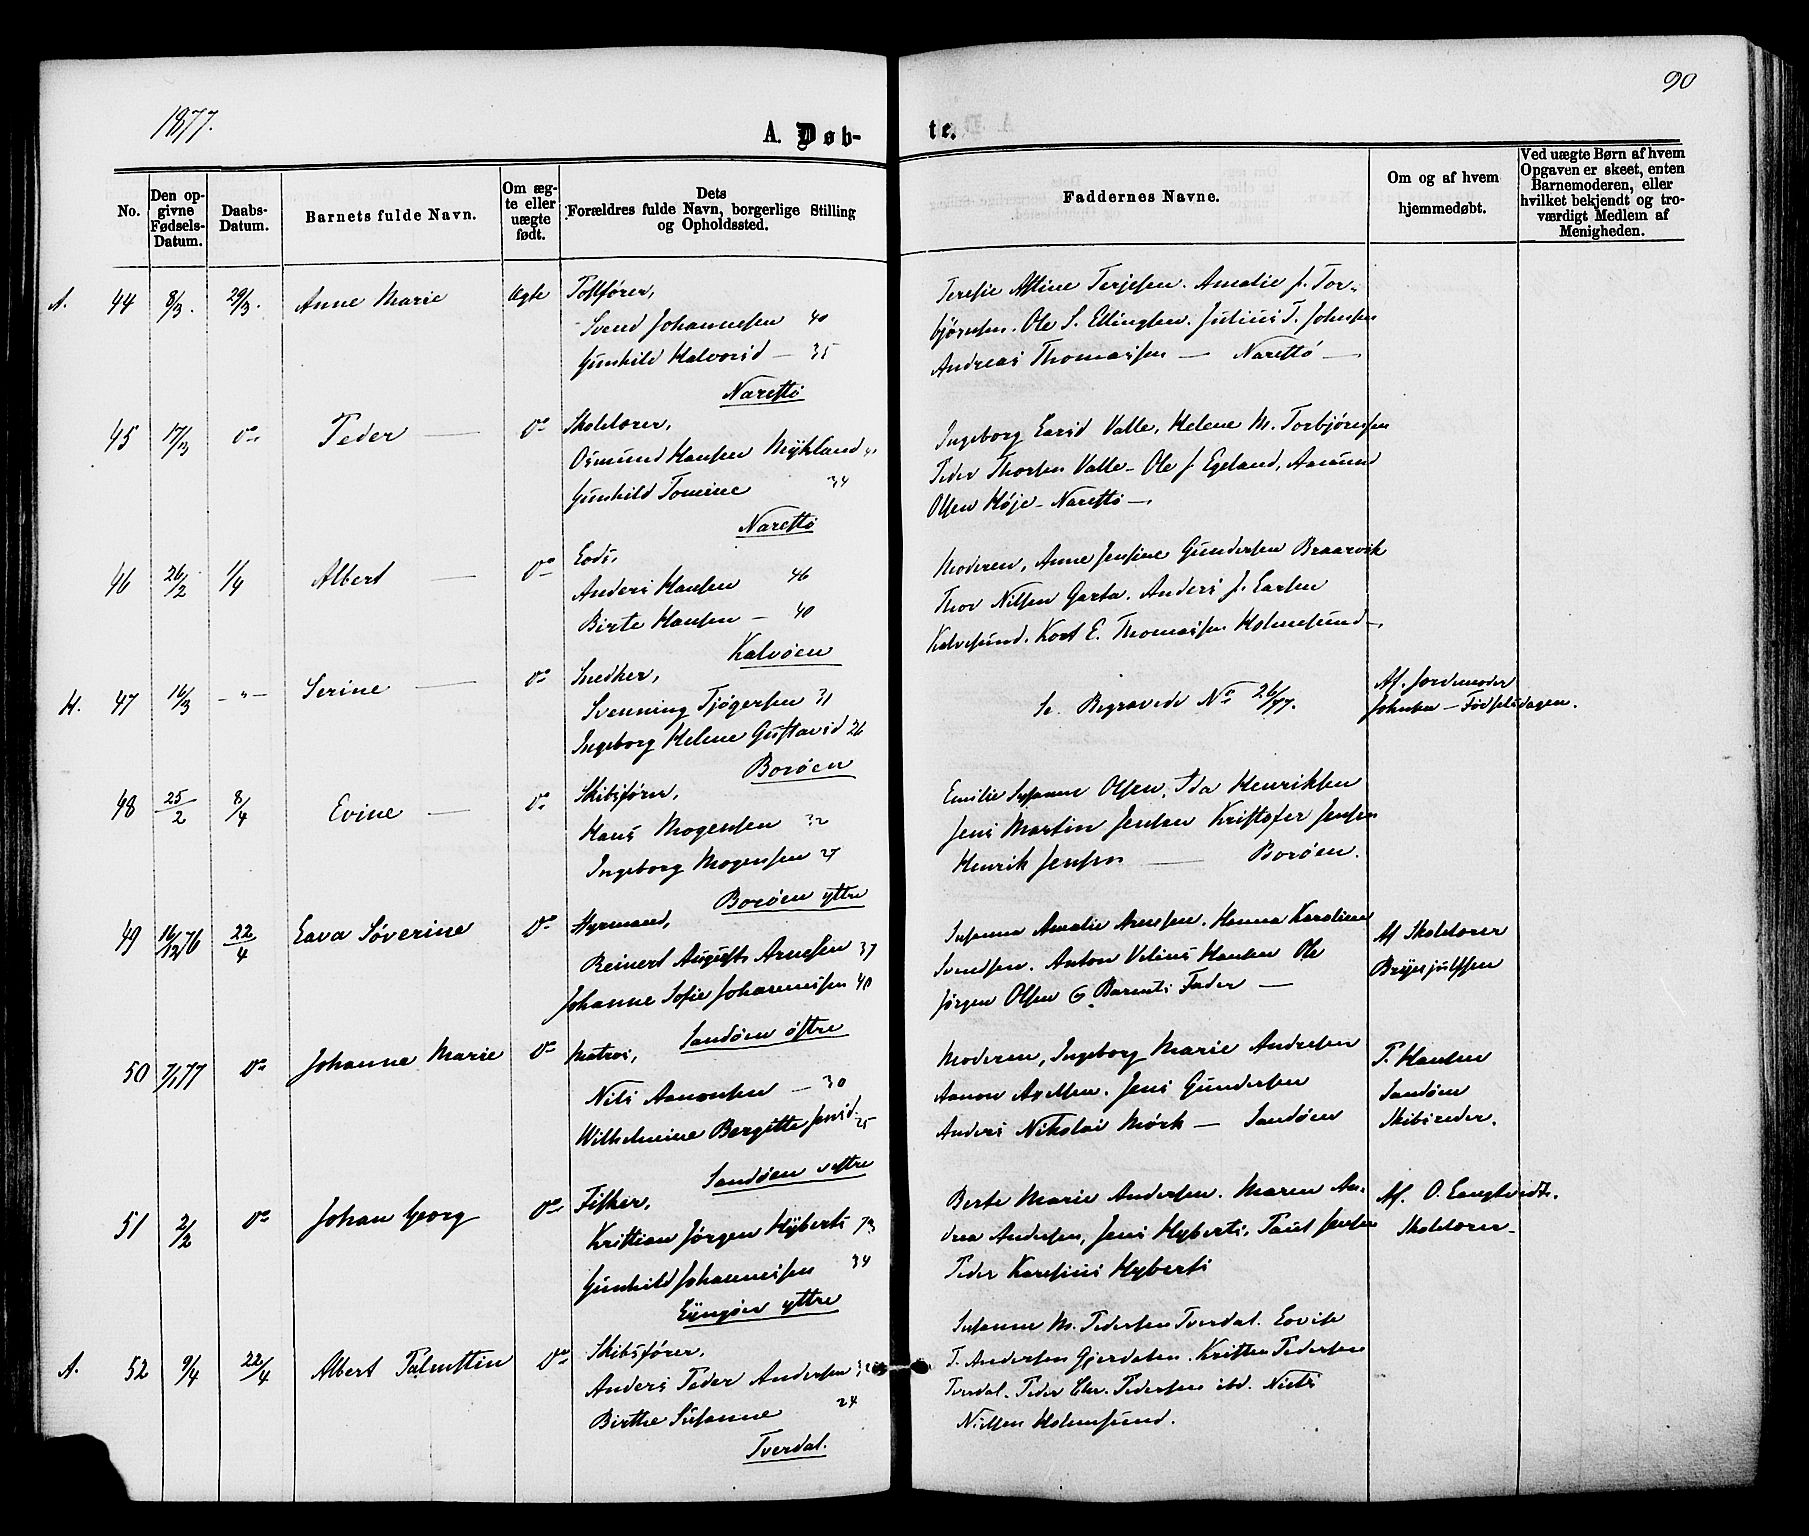 90
1877.
A. Døb-
te.
No.
Den opgivne Fødsels-Datum.
Daabs-Datum.
Barnets fulde Navn.
Om ægte eller uægte født.
Dets Forældres fulde Navn, borgerlige Stilling og Opholdssted.
Faddernes Navne.
Om og af hvem hjemmedøbt.
Ved uægte Børn af hvem Opgaven er skeet, enten Barnemoderen, eller hvilket bekjendt og troværdigt Medlem af Menigheden.
A. 44 8/3. 29/3. Anne Marie Ægte
Svend Johannesen 40
Gunhild Halvorsd — 35
Narestø
Teresie Alvine Terjesen. Amalie J. Tor-
bjørnsen. Ole S. Ellingsen. Julius T. Johnsen
Andreas Thomassen — Narestø —
45 17/3 Do Peder — Do Skolelærer,
Osmund Hansen Mykland
Gunhild Tomine 34
Narestø
Ingeborg Larsd Valle, Helene M. Torbjørnsen
Peder Thorsen Valle — Ole J. Egeland, Aamund
Olsen Høje — Narestø —.
46 26/2 1/4 Albert — Do Lods,
Anders Hansen 46
Birte Hansen — 40
Kalvøen
Moderen, Anne Jensine Gundersen Braarvik
Thor Nilsen Garta. Anders J. Larsen
Kalvesund. Kort E. Thomassen Holmesund —.
H. 47 16/3 — " — Serine — Do Snedker,
Svenning Tjøgersen 31
Ingeborg Helene Gustavsd 26
Borøen
Se Begravede No 26/77.
Af Jordemoder
Johnsen — Fødselsdagen.
48 25/2 8/4 Evine — Do Skibsfører,
Hans Mogensen 32
Ingeborg Mogensen 27
Borøen yttre
Emilie Susanne Olsen, Ida Henriksen
Jens Martin Jensen Kristofer Jensen
Henrik Jensen — Borøen.
49 16/12 76 22/4 Lava Søverine Do Styrmand,
Reinert August Arnesen 37
Johanne Sofie Johannesen 40
Sandøen østre
Susanna Amalie Arnesen. Hanna Karoline
Svendsen. Anton Velius Hansen Ole
Jørgen Olsen & Barnets Fader —
Af Skolelærer
Brynjulfsen
50 7/1 77 Do Johanne Marie Do Matros,
Nils Aanonsen — 30
Wilhelmine Bergitte Jensd. 25
Sandøen vestre
Moderen, Ingeborg Marie Andersen
Aanon Axelsen. Jens Gundersen
Anders Nikolai Mørk — Sandøen
T. Hansen
Sandøen
Skibsreder.
51 2/2 Do Johan Georg Do Fisker,
Kristian Jørgen Hyberts
Gunhild Johannesen 34
Lyngøer yttre
Berte Marie Andersen. Maren An-
drea Andersen, Jens Hyberts, Paul Jensen
Peder Karesius Hyberts
Af O. Langtvedt.
Skolelærer —
A. 52 9/4 22/4 Albert Palmstin Do Skibsfører,
Anders Peder Andersen
Birthe Susanne 24
Tverdal.
Susanne M. Pedersen Tverdal. Lovise
T. Andersen Gjerdalen. Kristen Pedersen
Tverdal. Peder Chr. Pedersen ibd. Niels
Nilsen Holmesund.